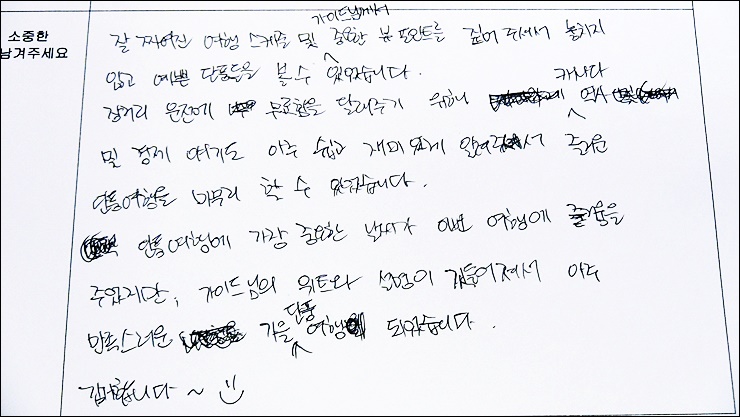 소중한
남겨주세요
가이드님께서
잘 짜여진 여행 스케줄 및 중요한 뷰 포인트를 짚어 주셔서 놓치지
않고 예쁜 단풍들을 볼 수 있었습니다.
캐나다
장거리 운전에 무료함을 달래주기 위해 역사
및 경제 얘기도 아주 쉽고 재미있게 알려주셔서 즐거운
단풍여행을 마무리 할 수 있었습니다.
단풍여행에 가장 중요한 날씨가 이번 여행에 즐거움을
주었지만, 가이드님의 위트와 설명이 곁들어져서 아주
단풍
만족스러운 가을 여행이 되었습니다.
감사합니다 ~ :)